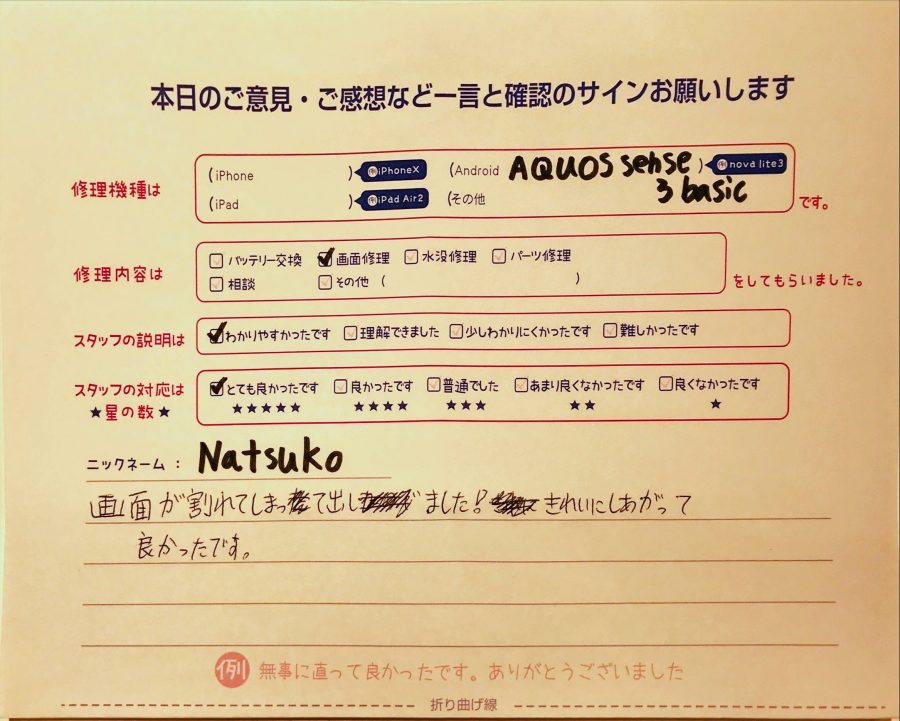 本日のご意見・ご感想など一言と確認のサインお願いします
修理機種は (iPhone ) 例 iPhoneX (Android AQUOS sense ) 例 nova lite3
(iPad ) 例 iPad Air2 (その他 3 basic です。
修理内容は バッテリー交換 画面修理 水没修理 パーツ修理
相談 その他 ( ) をしてもらいました。
スタッフの説明は わかりやすかったです 理解できました 少しわかりにくかったです 難しかったです
スタッフの対応は とても良かったです 良かったです 普通でした あまり良くなかったです 良くなかったです
★星の数★ ★★★★★ ★★★★ ★★★ ★★ ★
ニックネーム： Natsuko
画面が割れてしまって出し ました! きれいにしあがって
良かったです。
例 無事に直って良かったです。ありがとうございました
折り曲げ線